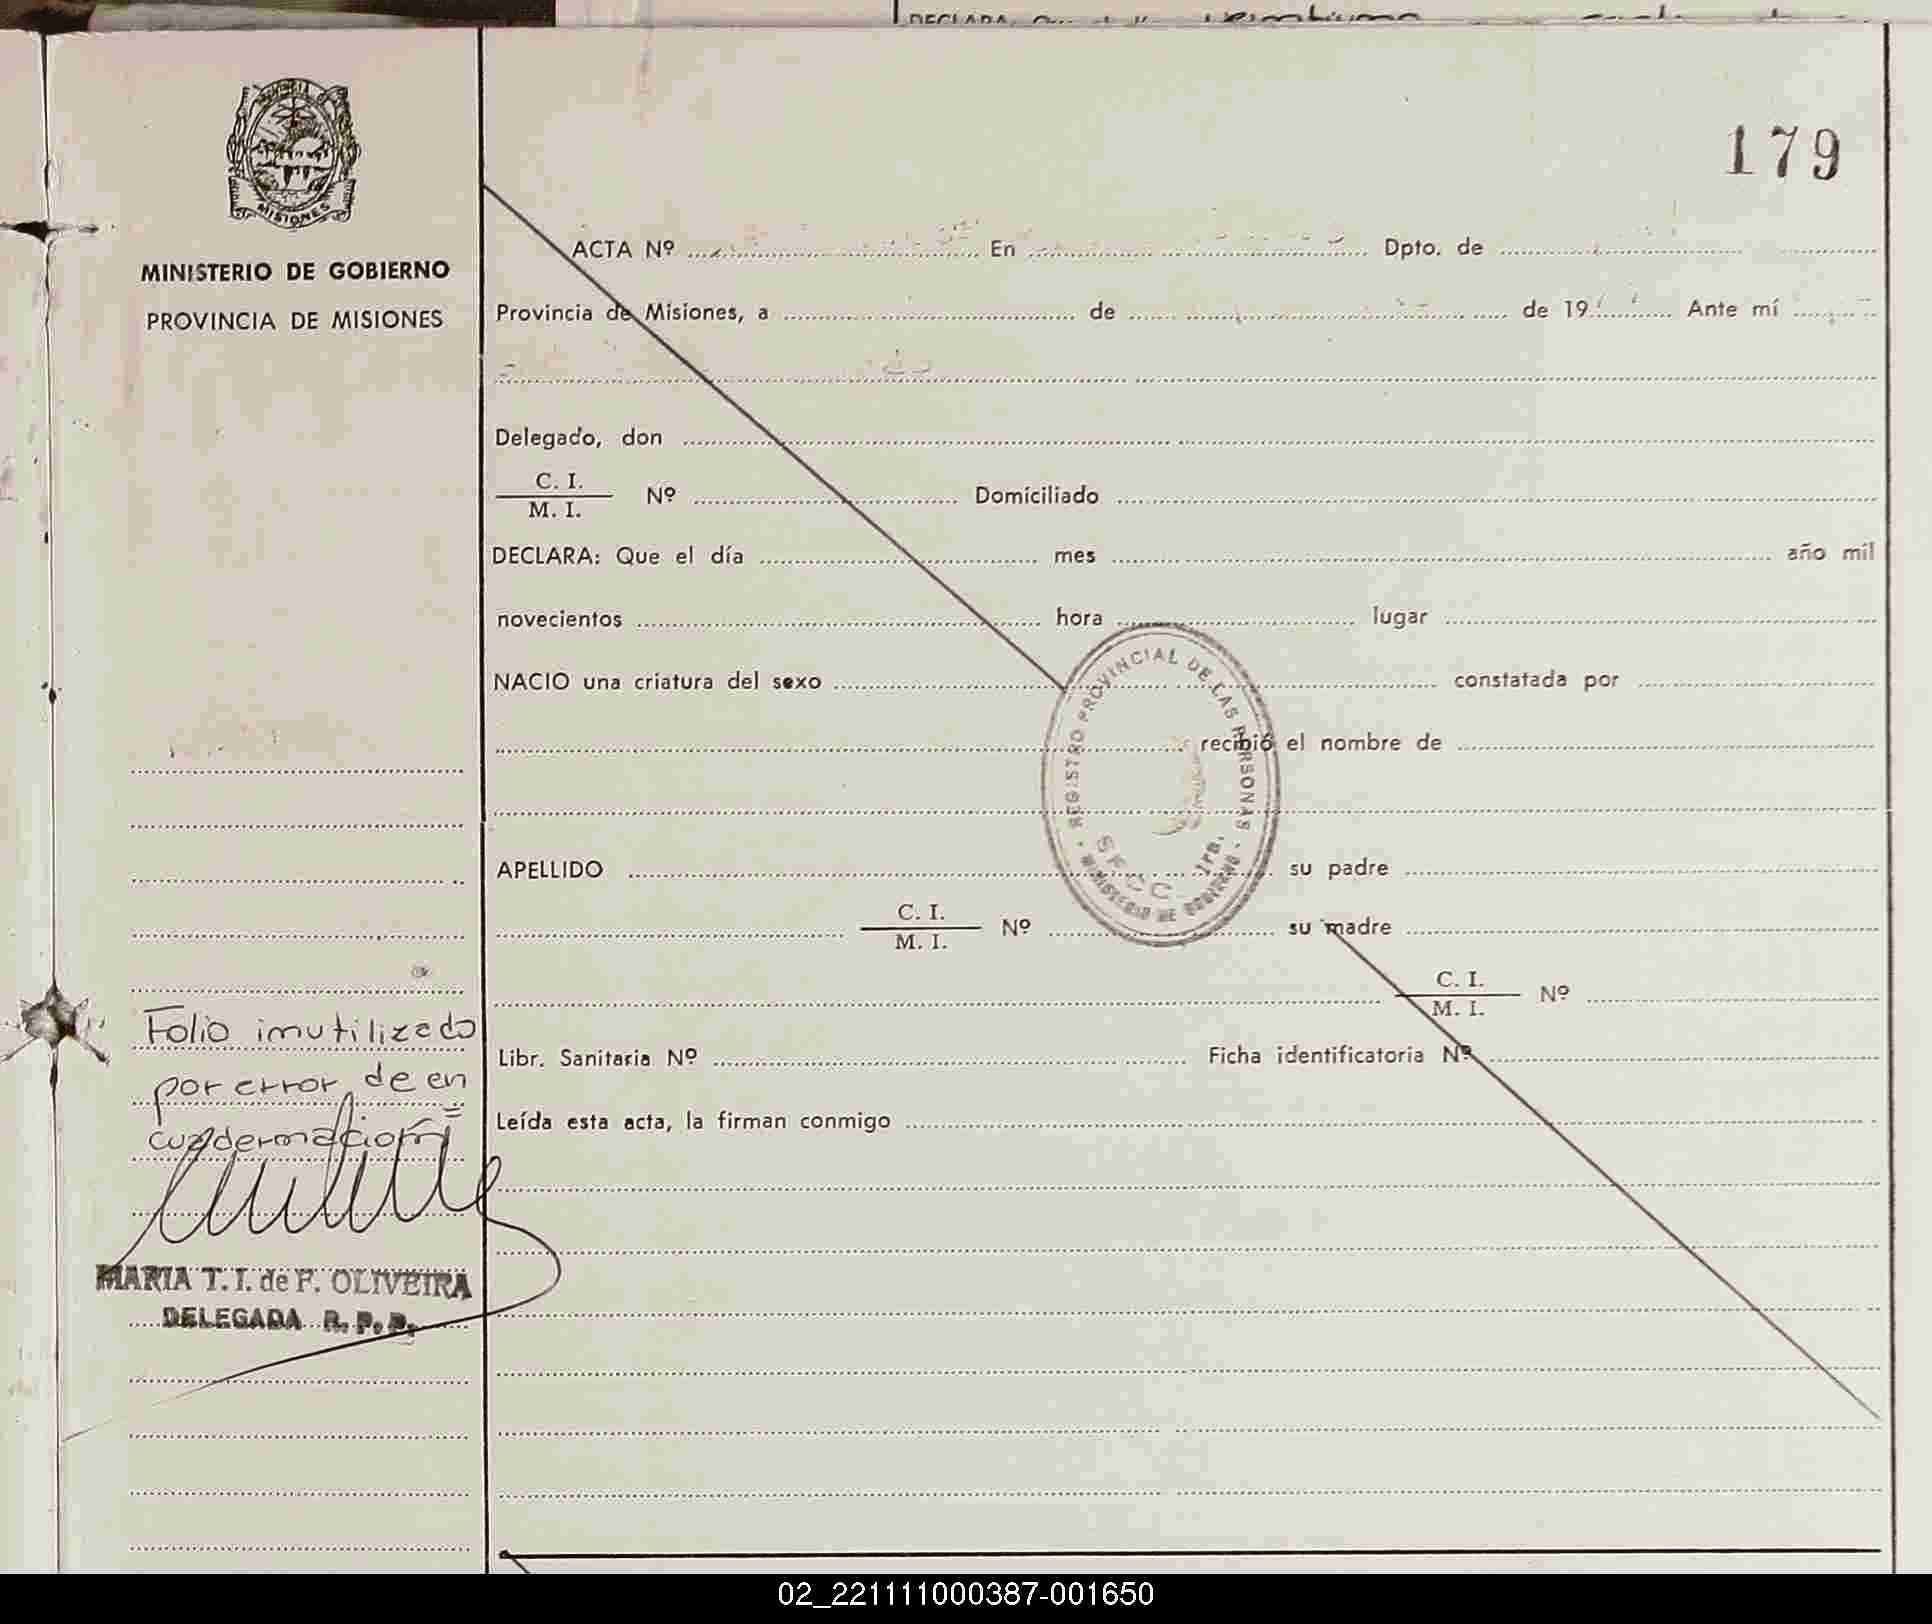 179
MISIONES
MINISTERIO DE GOBIERNO
PROVINCIA DE MISIONES
ACTA Nº En Dpto. de
Provincia de Misiones, a de de 19 Ante mí
Delegado, don
C. I.
M. I. Nº Domiciliado
DECLARA: Que el día mes año mil
novecientos hora lugar
NACIO una criatura del sexo constatada por
recibió el nombre de
APELLIDO su padre
C. I.
M. I. Nº su madre
C. I.
M. I. Nº
Libr. Sanitaria Nº Ficha identificatoria Nº
Leída esta acta, la firman conmigo
REGISTRO PROVINCIAL DE LAS PERSONAS
SECC. 1ra.
MINISTERIO DE GOBIERNO
Folio inutilizado
por error de en
cuadernación
MARIA T. I. de F. OLIVEIRA
DELEGADA R. P. P.
02_221111000387-001650